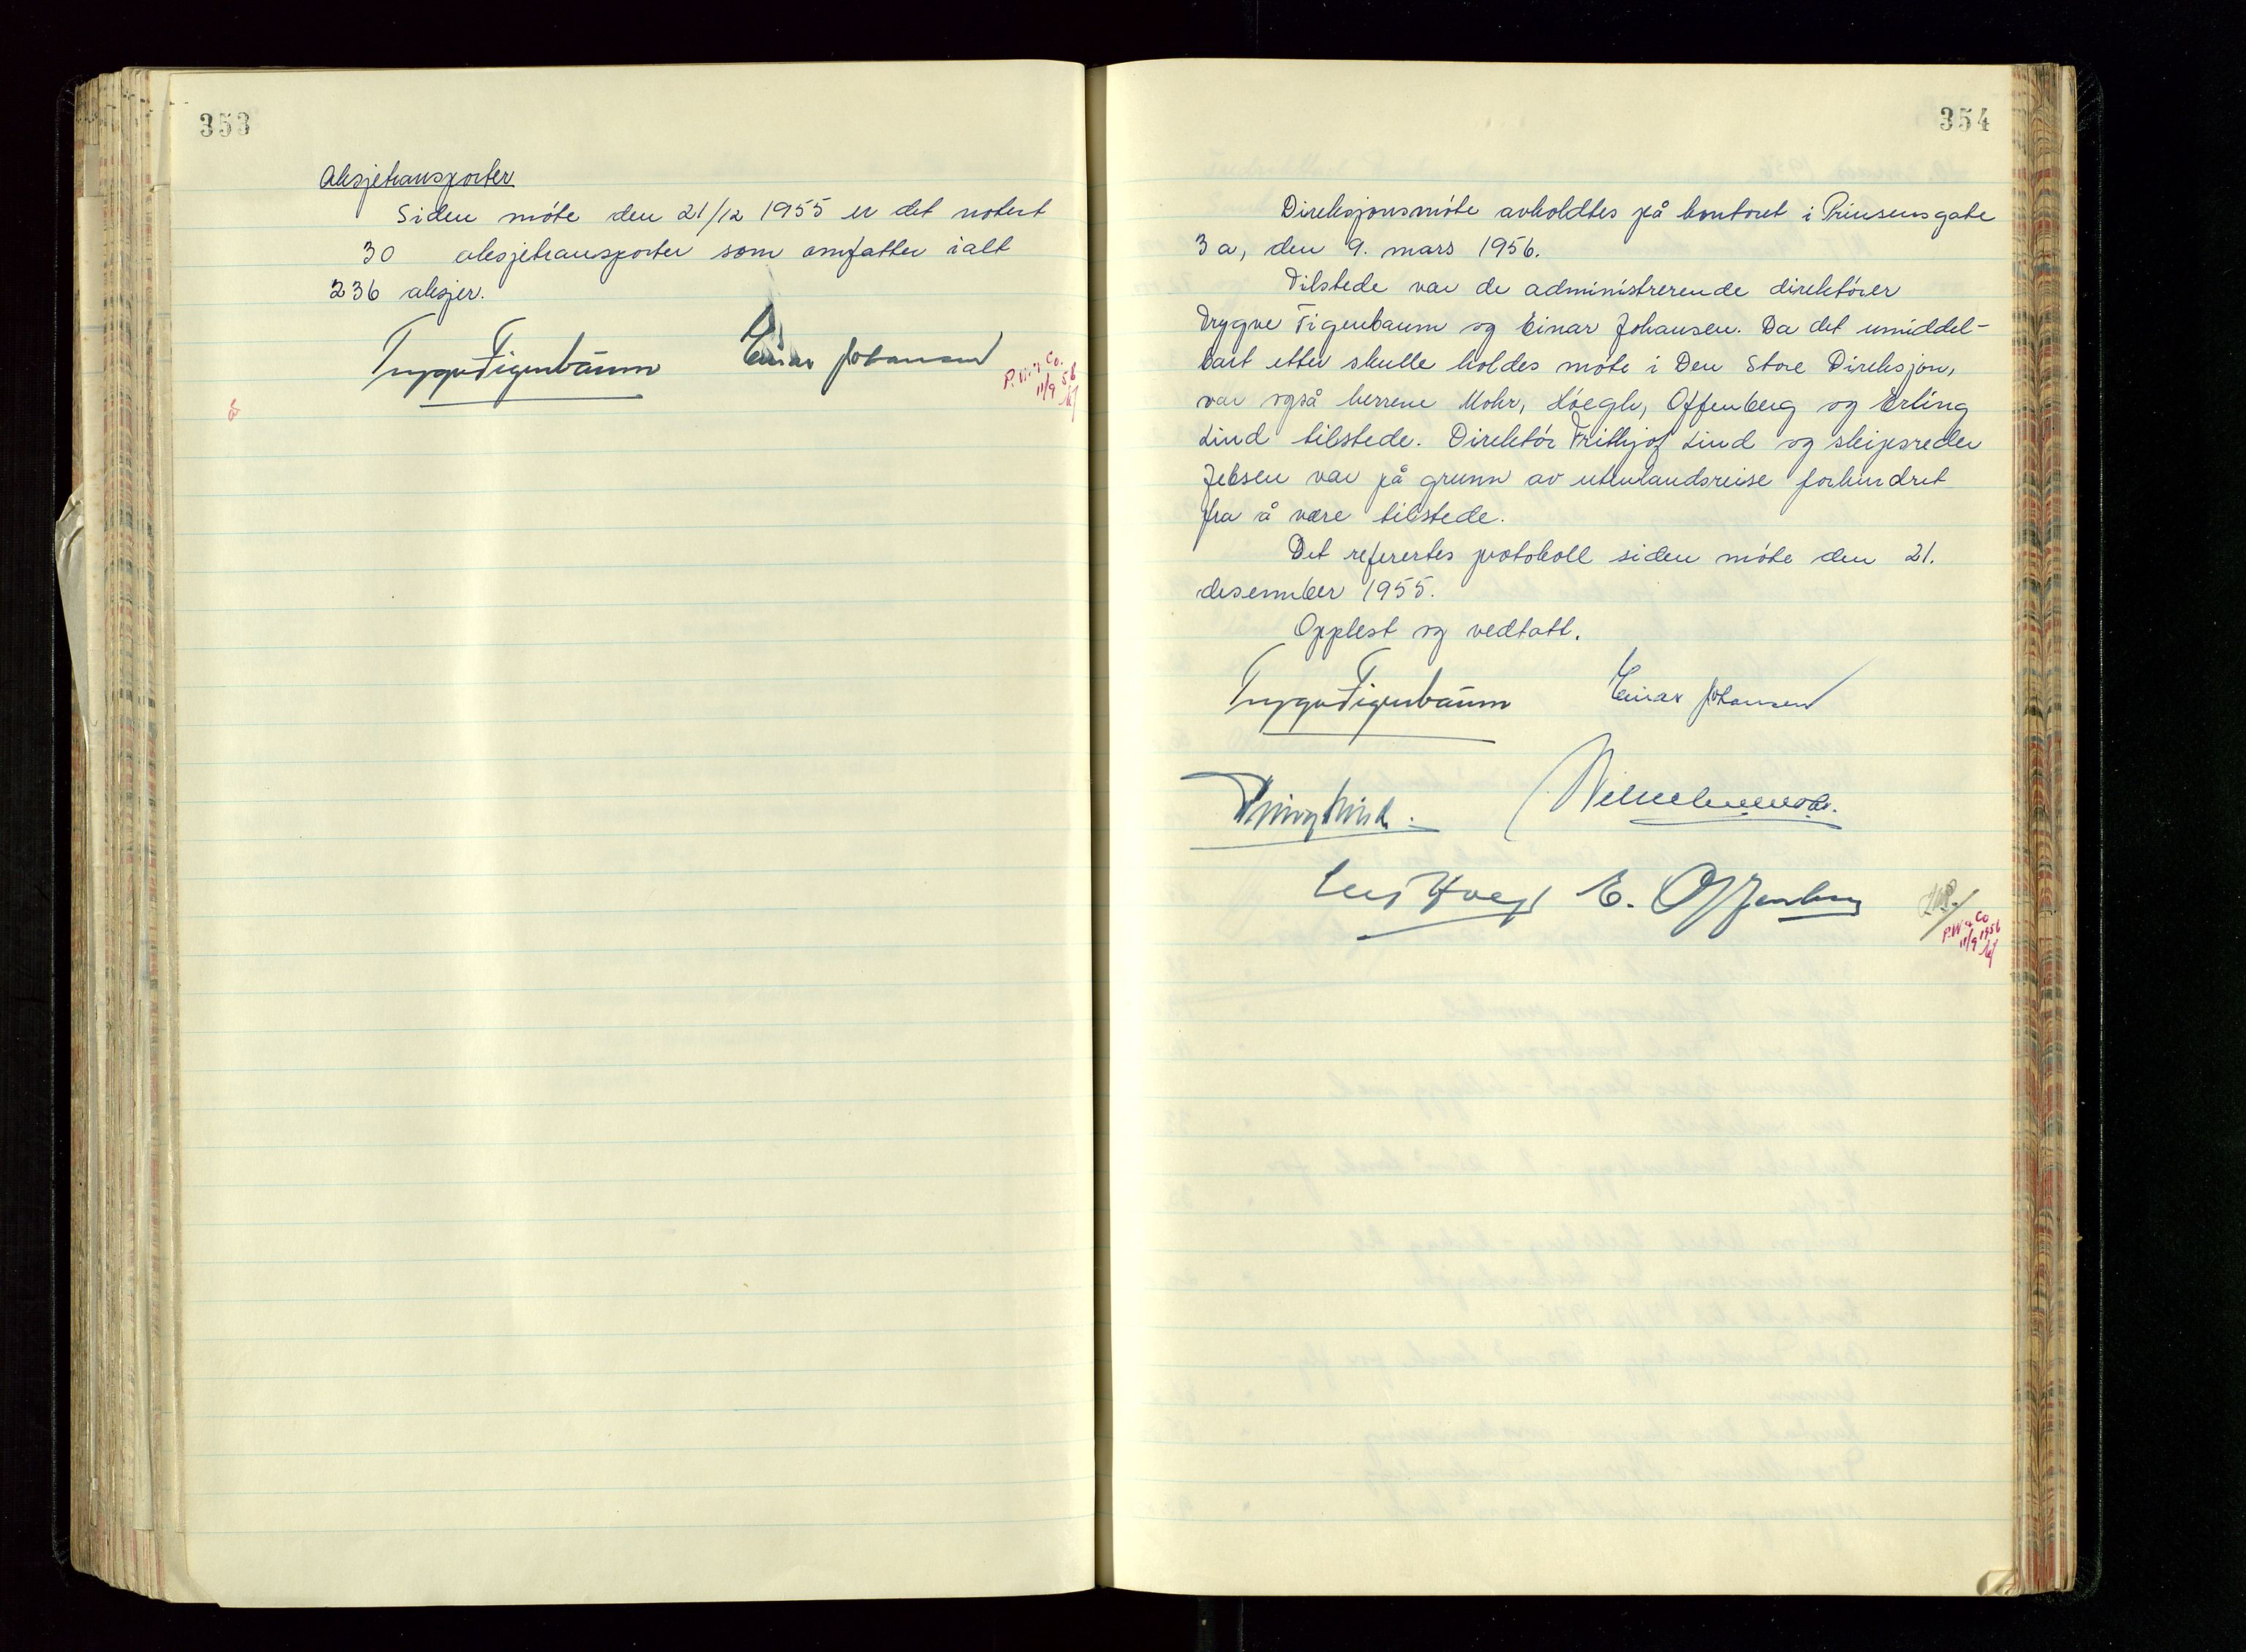 353
Aksjetransporter
Siden møte den 21/12 1955 er det notert
30 aksjetransporter som omfatter ialt
236 aksjer.
Trygve Figenbaum Einar Johansen
P.W. & Co.
11/9 56
354
Direksjonsmøte avholdtes på kontoret i Prinsensgate
3a, den 9. mars 1956.
Tilstede var de administrerende direktører
Trygve Figenbaum og Einar Johansen. Da det umiddel-
bart etter skulle holdes møte i Den Store Direksjon,
var også herrene Mohr, Høegh, Offenberg og Erling
Lind tilstede. Direktør Frithjof Lind og skipsreder
Jebsen var på grunn av utenlandsreise forhindret
fra å være tilstede.
Det refertes protokoll siden møte den 21.
desember 1955.
Opplest og vedtatt.
Trygve Figenbaum Einar Johansen
Erling Lind. Wilhelm Mohr.
Leif Høegh E. Offenberg
P.W. & Co
11/9 1956